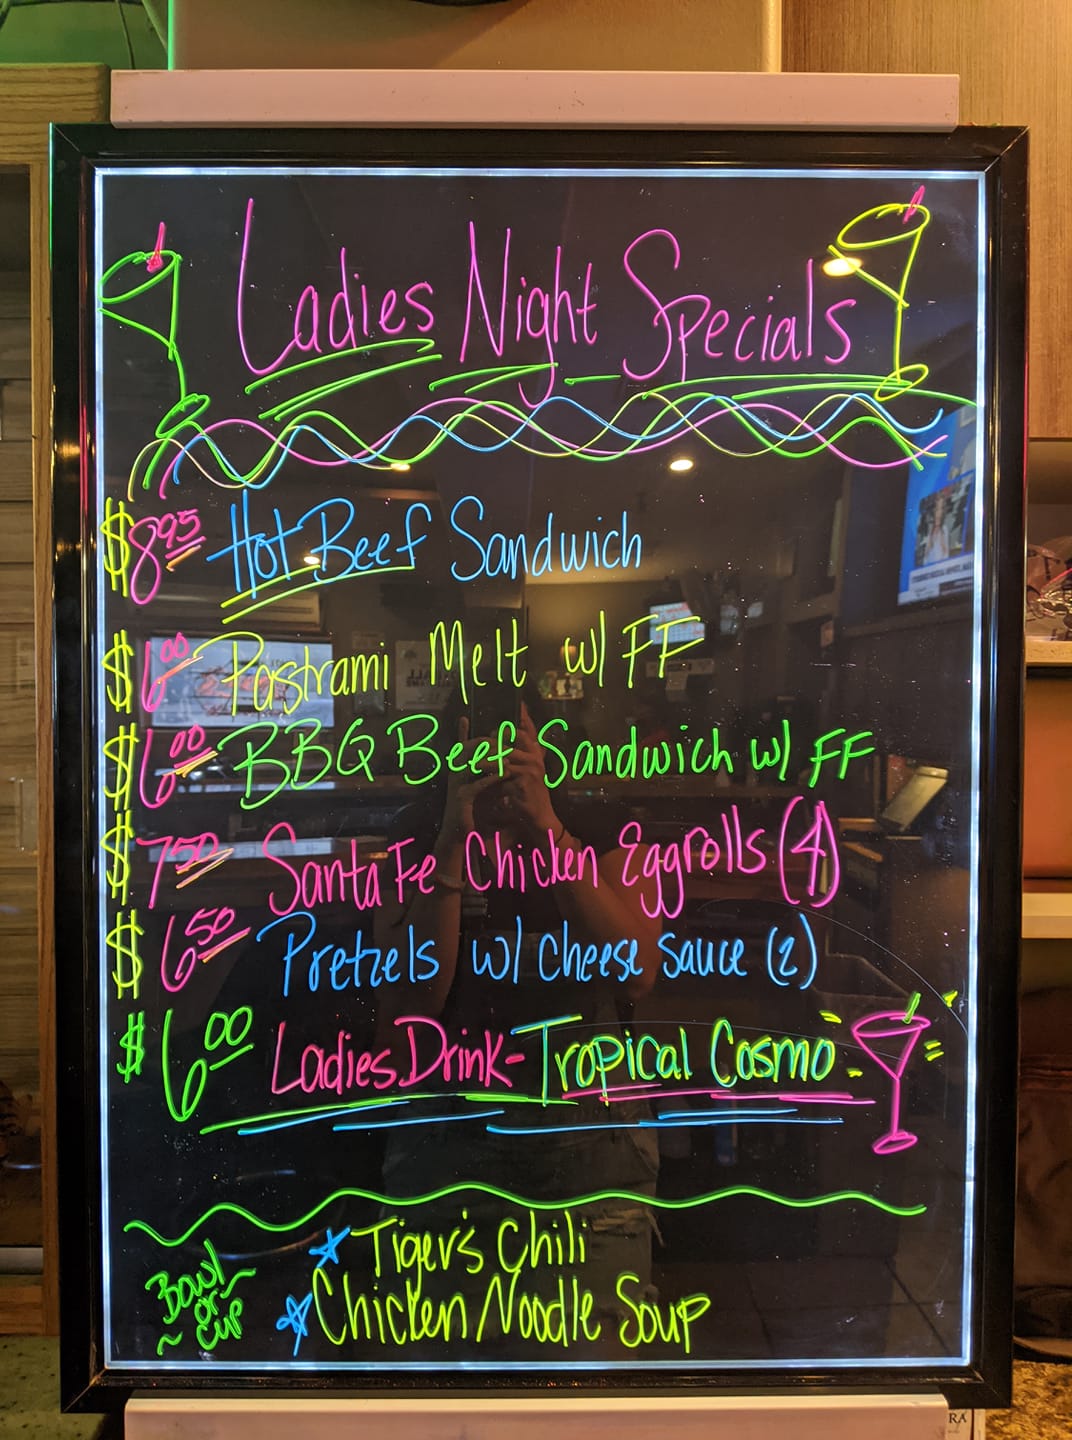 Ladies Night Specials
$8.95 Hot Beef Sandwich
$6.00 Pastrami Melt w/ FF
$6.00 BBQ Beef Sandwich w/ FF
$7.50 Santa Fe Chicken Eggrolls (4)
$6.50 Pretzels w/ Cheese Sauce (2)
$6.00 Ladies Drink - Tropical Cosmo
Bowl or Cup
Tiger's Chili
Chicken Noodle Soup
RA